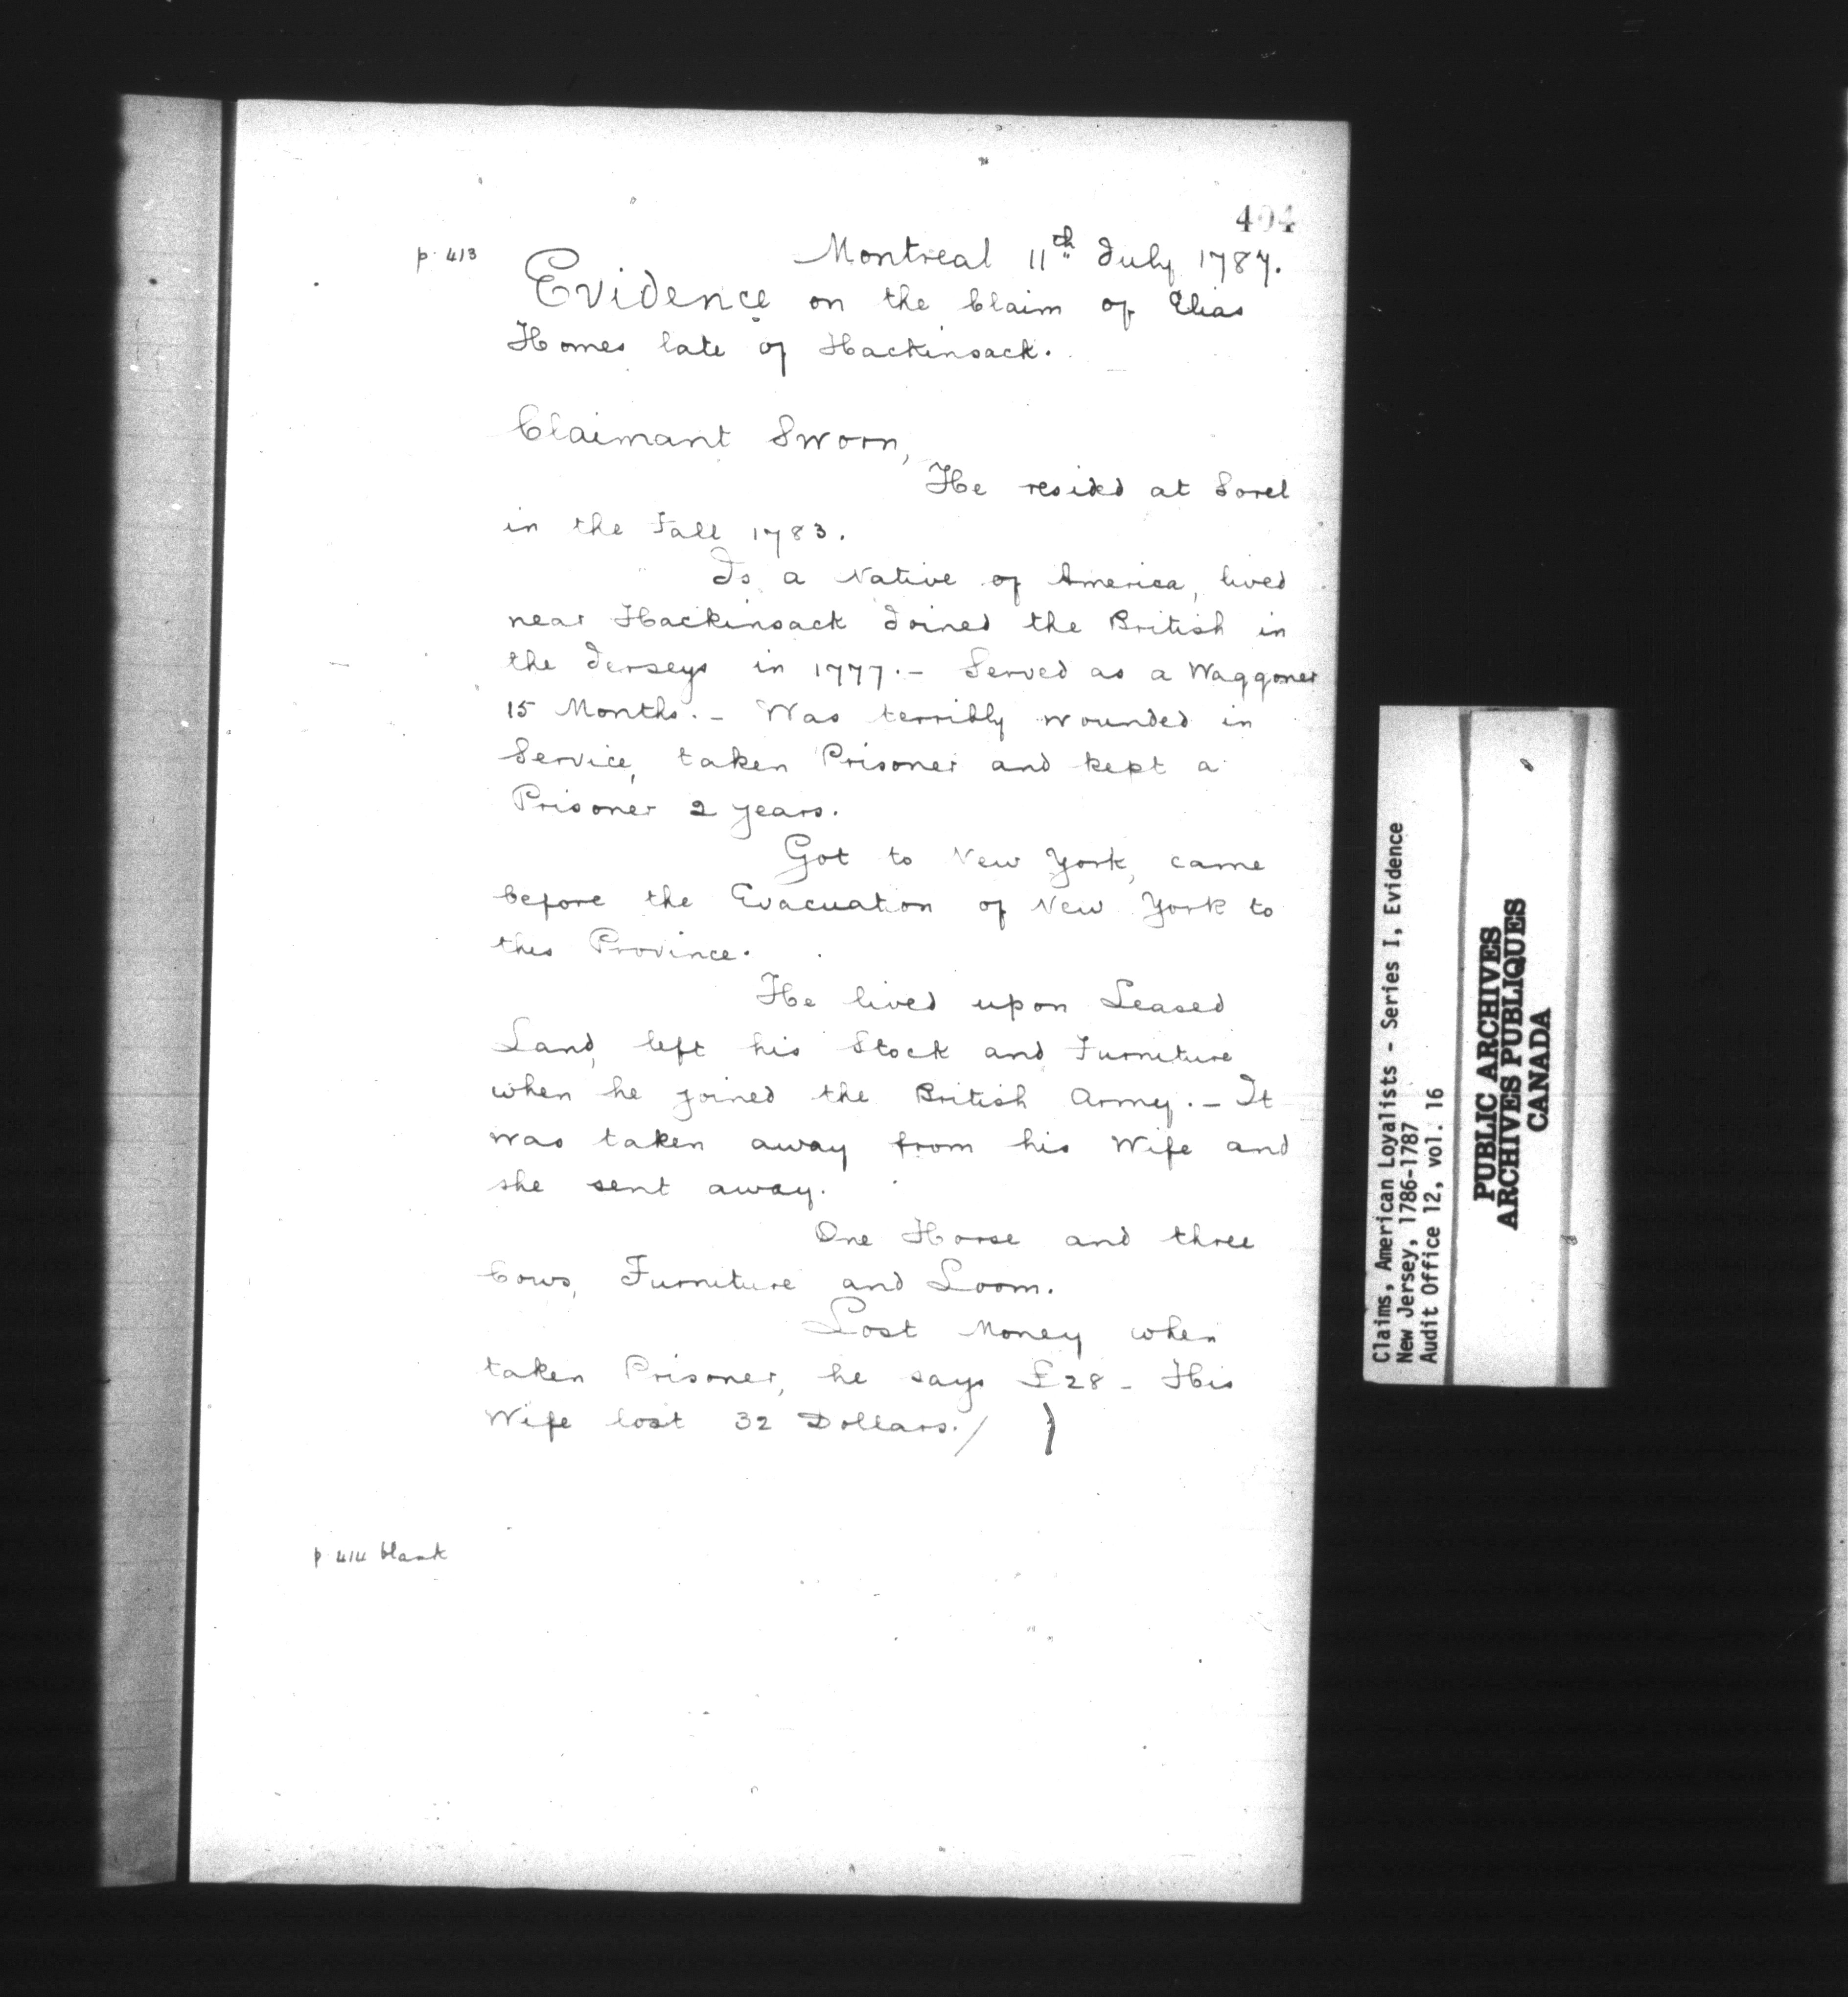 404
p. 413
Montreal 11th July 1787.
Evidence on the Claim of Elias
Homes late of Hackinsack.
Claimant Sworn,
He resided at Sorel
in the Fall 1783.
Is a Native of America, lived
near Hackinsack Joined the British in
the Jerseys in 1777.- Served as a Waggoner
15 Months.- Was terribly wounded in
Service, taken Prisoner and kept a
Prisoner 2 years.
Got to New York, came
before the Evacuation of New York to
this Province.
He lived upon Leased
Land, left his Stock and Furniture
when he joined the British Army.- It
was taken away from his Wife and
she sent away.
One Horse and three
Cows, Furniture and Loom.
Lost Money when
taken Prisoner, he says £28 - His
Wife lost 32 Dollars./ )
p. 414 blank
Claims, American Loyalists - Series I, Evidence
New Jersey, 1786-1787
Audit Office 12, vol. 16
PUBLIC ARCHIVES
ARCHIVES PUBLIQUES
CANADA